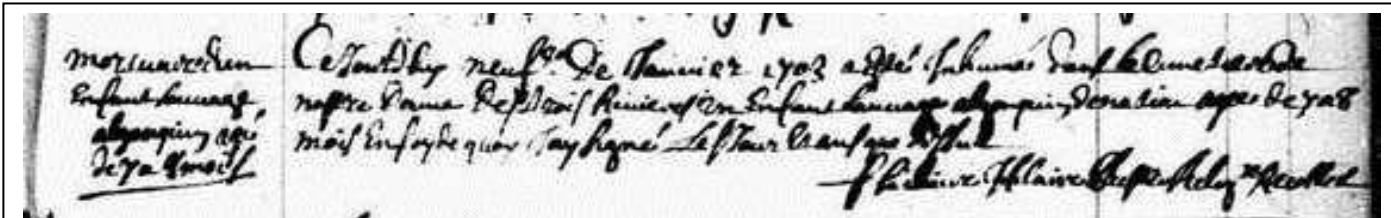 mortuaire d'un
Enfant Sauvage,
algonquin agé
de 7 a 8 mois
Ce Jourdhuy neuf.e De Januier 1703 a Esté Inhumé dans le Cimetiere de
nostre Dame Des trois Riuieres un Enfant Sauuage algonquin de nation agé de 7 a 8
mois En foy de quoy Jay signé Les Jour et an que dessus
hilaire Relig.x Recollet